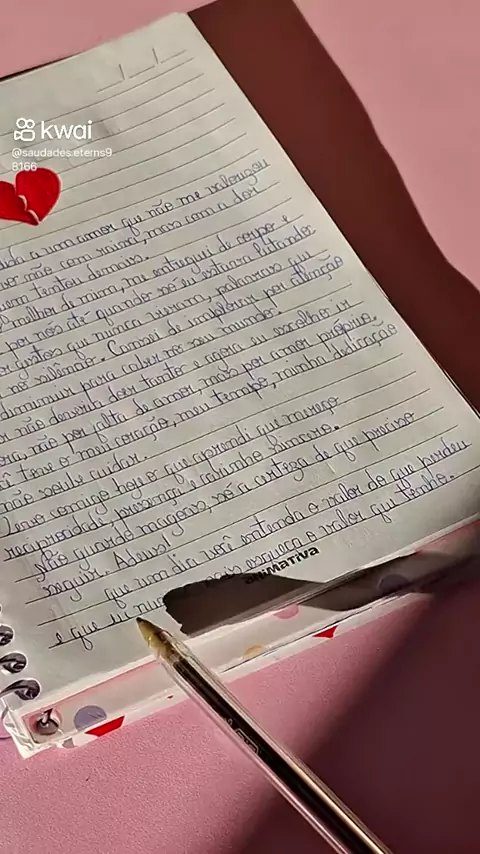 kwai
@saudades.eterns9
8166
a um amor que não me valorizou
não com raiva, mas com a dor
quem tentou demais.
melhor de mim, me entreguei de corpo e
por nós até quando só eu estava lutando
gestos que nunca vieram, palavras que
no silêncio. Cansei de implorar por atenção
diminuir para caber no seu mundo.
não deveria doer tanto e agora eu escolho ir
não por falta de amor, mas por amor próprio.
teve o meu coração, meu tempo, minha dedicação
não soube cuidar.
Levo comigo hoje o que aprendi que mereço
reciprocidade, presença e carinho sincero.
Não guardo mágoas, só a certeza de que preciso
seguir. Adeus!
que um dia você entenda o valor do que perdeu
e que eu mais esqueça o valor que tenho.
animativa